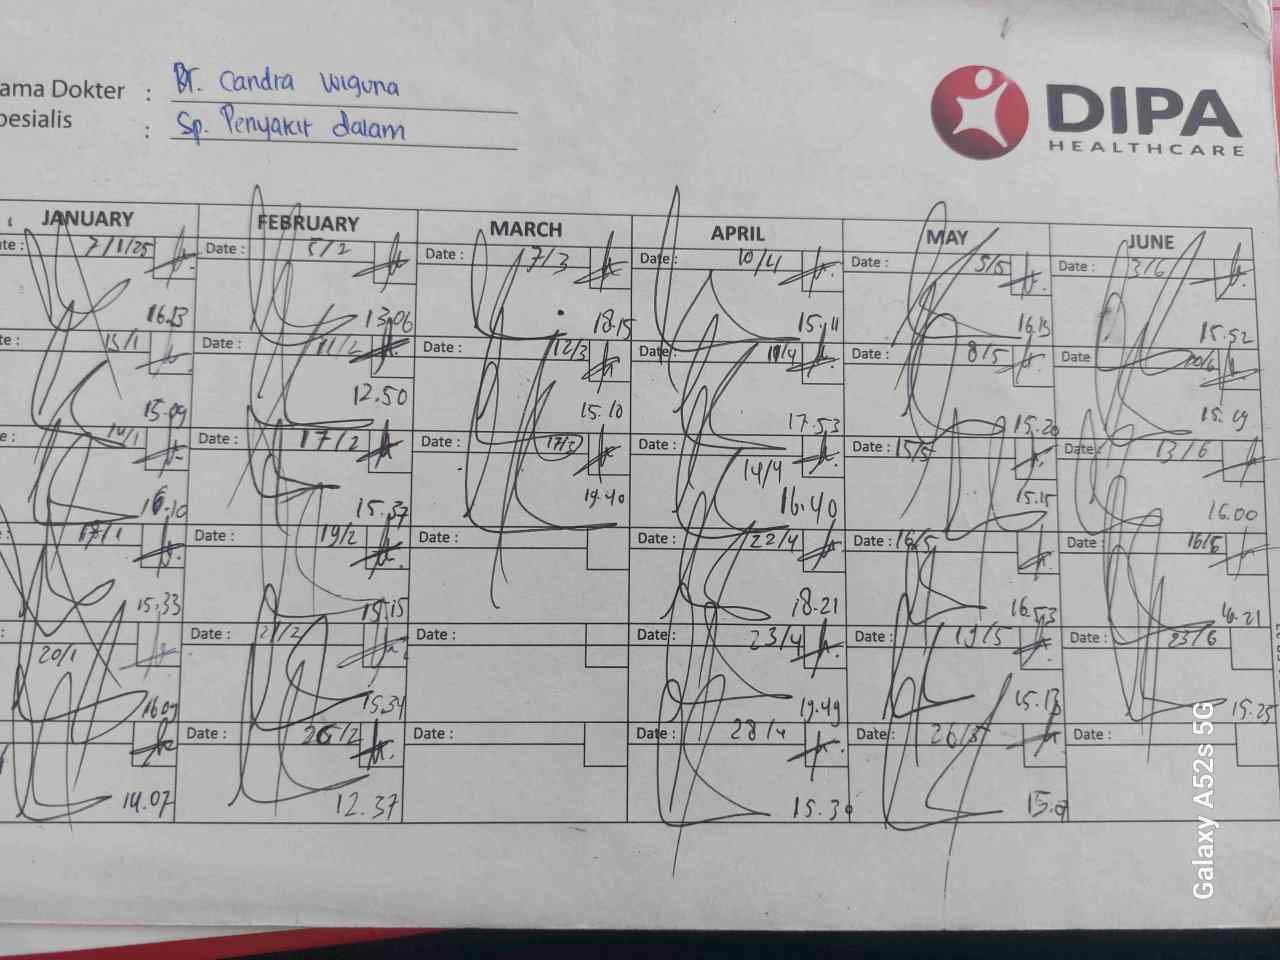 ama Dokter : Dr. Candra Wiguna
pesialis : Sp. Penyakit dalam
DIPA
HEALTHCARE
JANUARY FEBRUARY MARCH APRIL MAY JUNE
te: 7/1/25 Date : 5/2 Date : 7/3 Date : 10/4 Date : 5/5 Date : 3/6
16.13 13.06 18.15 15.11 16.15 15.52
te: 13/1 Date : 11/2 Date : 12/3 Date : 11/4 Date : 8/5 Date 10/6
15.09 12.50 15.10 17.53 15.20 15.19
te: Date : 17/2 Date : 17/3 Date : 14/4 15/5 Date : 13/6
15.37 19.40 16.40 15.15 16.00
17/1 Date : 19/2 Date : Date : 22/4 Date : 16/5 Date : 16/6
15.33 15.15 18.21 16.53 16.21
20/1 Date : 21/2 Date : Date : 23/4 Date : 19/5 Date : 23/6
16.09 15.34 19.49 15.13 15.25
Date : 26/2 Date : Date : 28/4 Date : 26/5 Date :
14.07 12.37 15.30
Galaxy A52s 5G